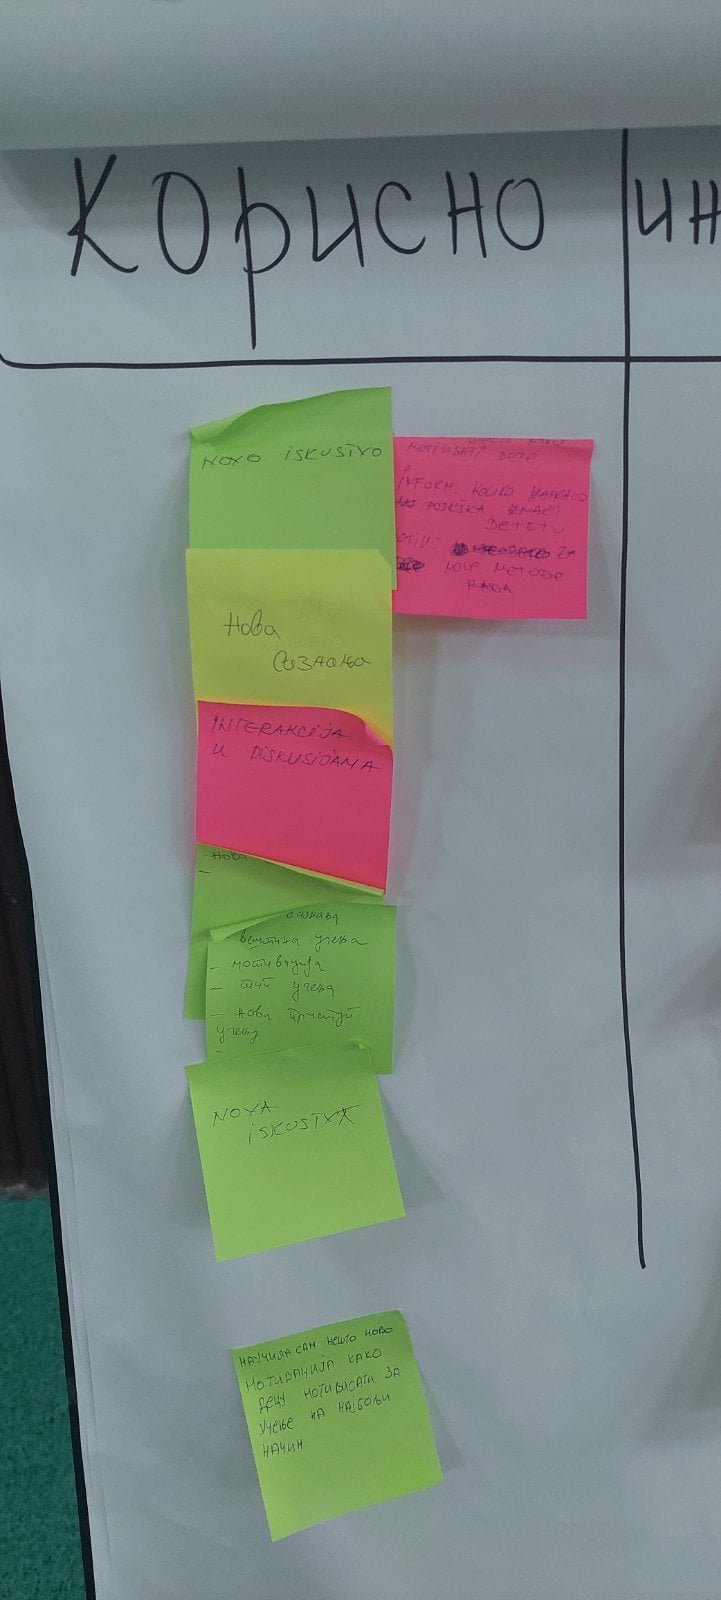 Корисно
ин
NOVO ISKUSTVO
MOTIVISATI DETE
INFORM. KOLIKO
PODRŠKA ZNAČI
DETETU
NOVE METODE
RADA
Нова
сазнања
INTERAKCIJA
U DISKUSIJAMA
- Нова
-
сазнања
вештина учења
- мотивација
- тип учења
- Нови приступ
учењу
NOVA
ISKUSTVA
НАУЧИЛА САМ НЕШТО НОВО
МОТИВАЦИЈА КАКО
ДЕЦУ МОТИВИСАТИ ЗА
УЧЕЊЕ НА НАЈБОЉИ
НАЧИН